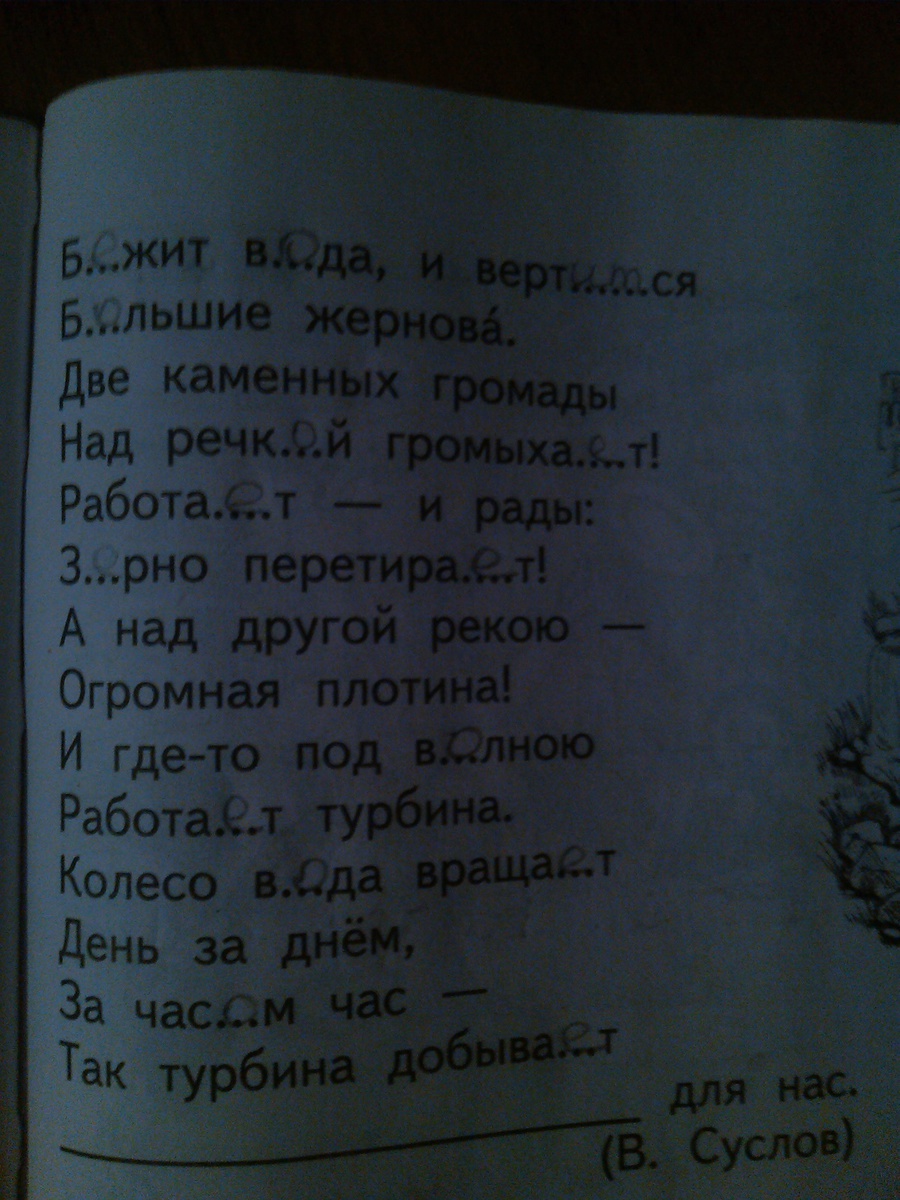 Б...ежит в...ода, и верт...ит...ся
Б...ольшие жернова́.
Две каменных громады
Над речк...ой громыха...ет!
Работа...ет — и рады:
З...ерно перетира...ет!
А над другой рекою —
Огромная плотина!
И где-то под в...олною
Работа...ет турбина.
Колесо в...ода враща...ет
День за днём,
За час...ом час —
Так турбина добыва...ет
____________ для нас.
(В. Суслов)